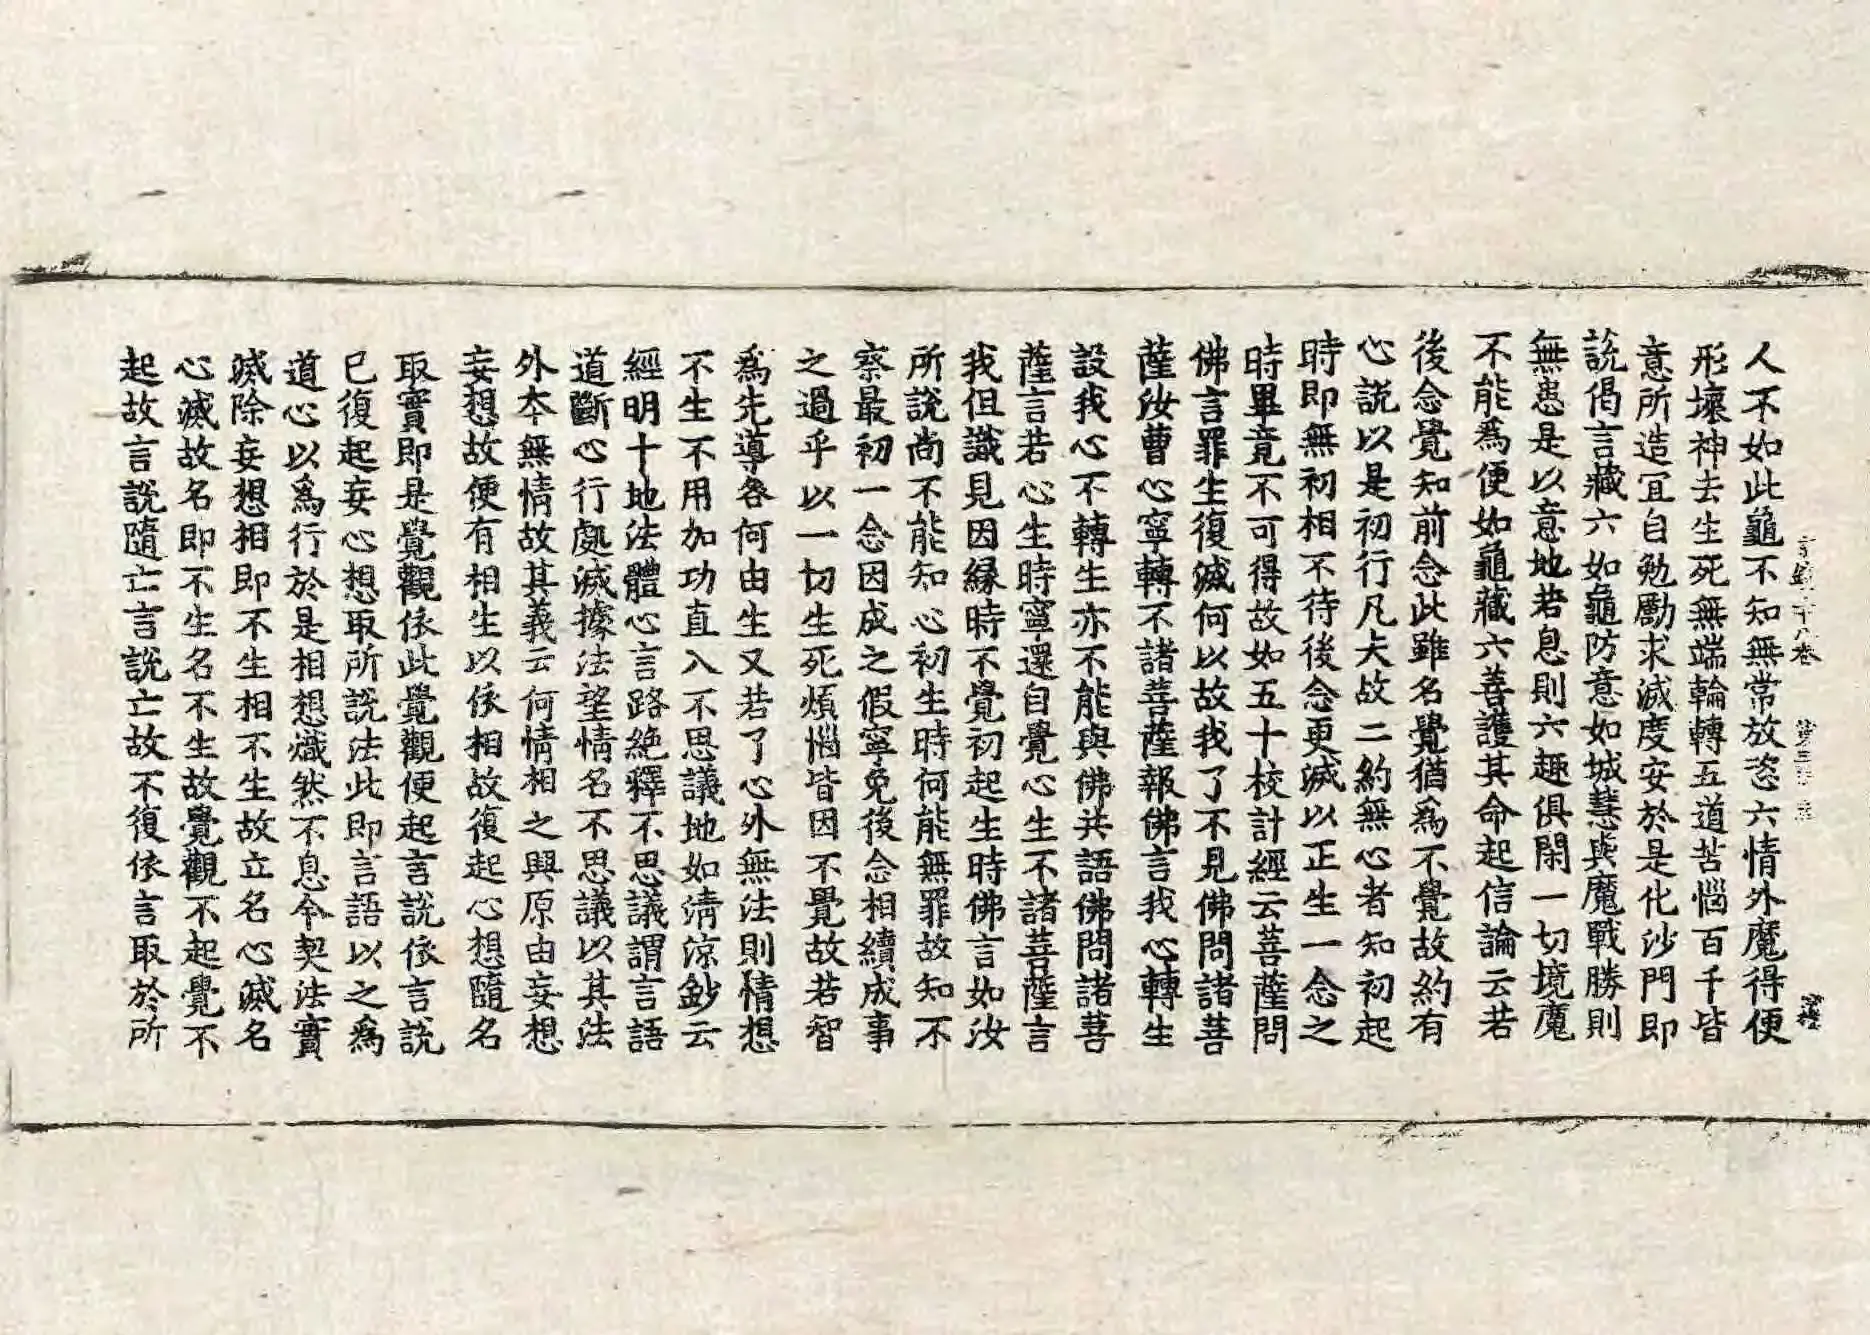 人不如此龜不知無常放恣六情外魔得便
形壞神去生死無端輪轉五道苦惱百千皆
意所造宜自勉勵求滅度安於是化沙門即
說偈言藏六如龜防意如城慧與魔戰勝則
無患是以意地若息則六趣俱閑一切境魔
不能為便如龜藏六善護其命起信論云若
後念覺知前念此雖名覺猶為不覺故約有
心說以是初行凡夫故二約無心者知初起
時即無初相不待後念更滅以正生一念之
時畢竟不可得故如五十校計經云菩薩問
佛言罪生復滅何以故我了不見佛問諸菩
薩汝曹心寧轉不諸菩薩報佛言我心轉生
設我心不轉生亦不能與佛共語佛問諸菩
薩言若心生時寧還自覺心生不諸菩薩言
我但識見因緣時不覺初起生時佛言如汝
所說尚不能知心初生時何能無罪故知不
察最初一念因成之假寧免後念相續成事
之過乎以一切生死煩惱皆因不覺故若智
為先導咎何由生又若了心外無法則情想
不生不用加功直入不思議地如清涼鈔云
經明十地法體心言路絕釋不思議謂言語
道斷心行處滅據法望情名不思議以其法
外本無情故其義云何情相之興原由妄想
妄想故便有相生以依相故復起心想隨名
取實即是覺觀依此覺觀便起言說依言說
已復起妄心想取所說法此即言語以之為
道心以為行於是相想熾然不息今契法實
滅除妄想相即不生相不生故立名心滅名
心滅故名即不生名不生故覺觀不起覺不
起故言說隨亡言說亡故不復依言取於所